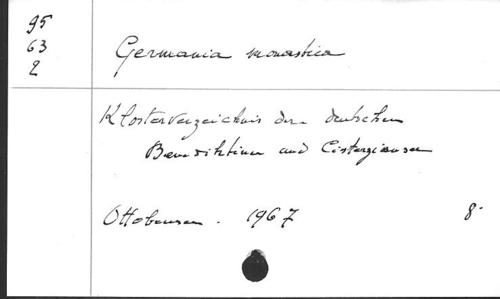 95
63
2
Germania monastica
Klosterverzeichnis der deutschen
Benediktiner und Cisterzienser
Ottobeuren . 1967 8°